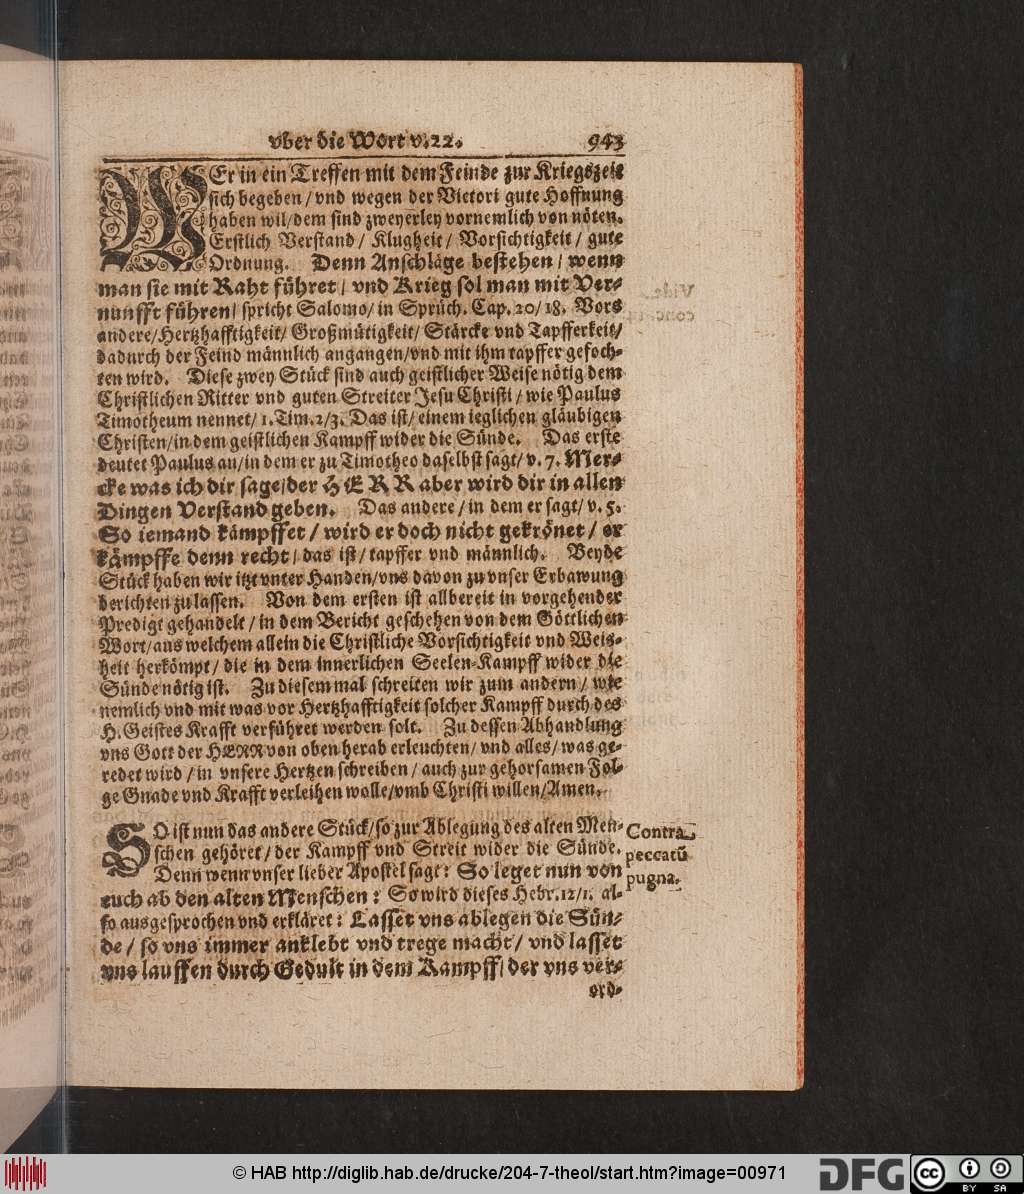 vber die Wort v.22.
943
WEr in ein Treffen mit dem Feinde zur Kriegszeit
sich begeben / vnd wegen der Victori gute Hoffnung
haben wil/dem sind zweyerley vornemlich von nöten.
Erstlich Verstand/ Klugheit/ Vorsichtigkeit/ gute
Ordnung. Denn Anschläge bestehen / wenn
man sie mit Raht führet / vnd Krieg sol man mit Ver-
nunfft führen/ spricht Salomo/ in Sprüch. Cap. 20/ 18. Vors
andere/Hertzhafftigkeit/ Großmütigkeit/ Stärcke vnd Tapfferkeit/
dadurch der Feind männlich angangen/vnd mit ihm tapffer gefoch-
ten wird. Diese zwey Stück sind auch geistlicher Weise nötig dem
Christlichen Ritter vnd guten Streiter Jesu Christi / wie Paulus
Timotheum nennet/ 1. Tim. 2/3. Das ist/ einem ieglichen gläubigen
Christen/in dem geistlichen Kampff wider die Sünde. Das erste
deutet Paulus an/in dem er zu Timotheo daselbst sagt/ v. 7. Mer-
cke was ich dir sage/der HERR aber wird dir in allen
Dingen Verstand geben. Das andere / in dem er sagt/ v. 5.
So iemand kämpffet / wird er doch nicht gekrönet / er
kämpffe denn recht/ das ist/ tapffer vnd männlich. Beyde
Stück haben wir itzt vnter Handen/vns davon zu vnser Erbawung
berichten zu lassen. Von dem ersten ist allbereit in vorgehender
Predigt gehandelt / in dem Bericht geschehen von dem Göttlichen
Wort/aus welchem allein die Christliche Vorsichtigkeit vnd Weis-
heit herkömpt / die in dem innerlichen Seelen-Kampff wider die
Sünde nötig ist. Zu diesem mal schreiten wir zum andern / wie
nemlich vnd mit was vor Hertzhafftigkeit solcher Kampff durch des
H. Geistes Krafft verführet werden solt. Zu dessen Abhandlung
vns Gott der HERR von oben herab erleuchten/ vnd alles/ was ge-
redet wird / in vnsere Hertzen schreiben / auch zur gehorsamen Fol-
ge Gnade vnd Krafft verleihen wolle/vmb Christi willen/Amen.
SO ist nun das andere Stück/so zur Ablegung des alten Men-
schen gehöret / der Kampff vnd Streit wider die Sünde.
Denn wenn vnser lieber Apostel sagt: So leget nun von
euch ab den alten Menschen: So wird dieses Hebr. 12/1. al-
so ausgesprochen vnd erkläret: Lasset vns ablegen die Sün-
de / so vns immer anklebt vnd trege macht / vnd lasset
vns lauffen durch Gedult in dem Kampff/ der vns ver-
ord-
Contra
peccatū
pugna.
© HAB http://diglib.hab.de/drucke/204-7-theol/start.htm?image=00971
DFG
cc
BY SA